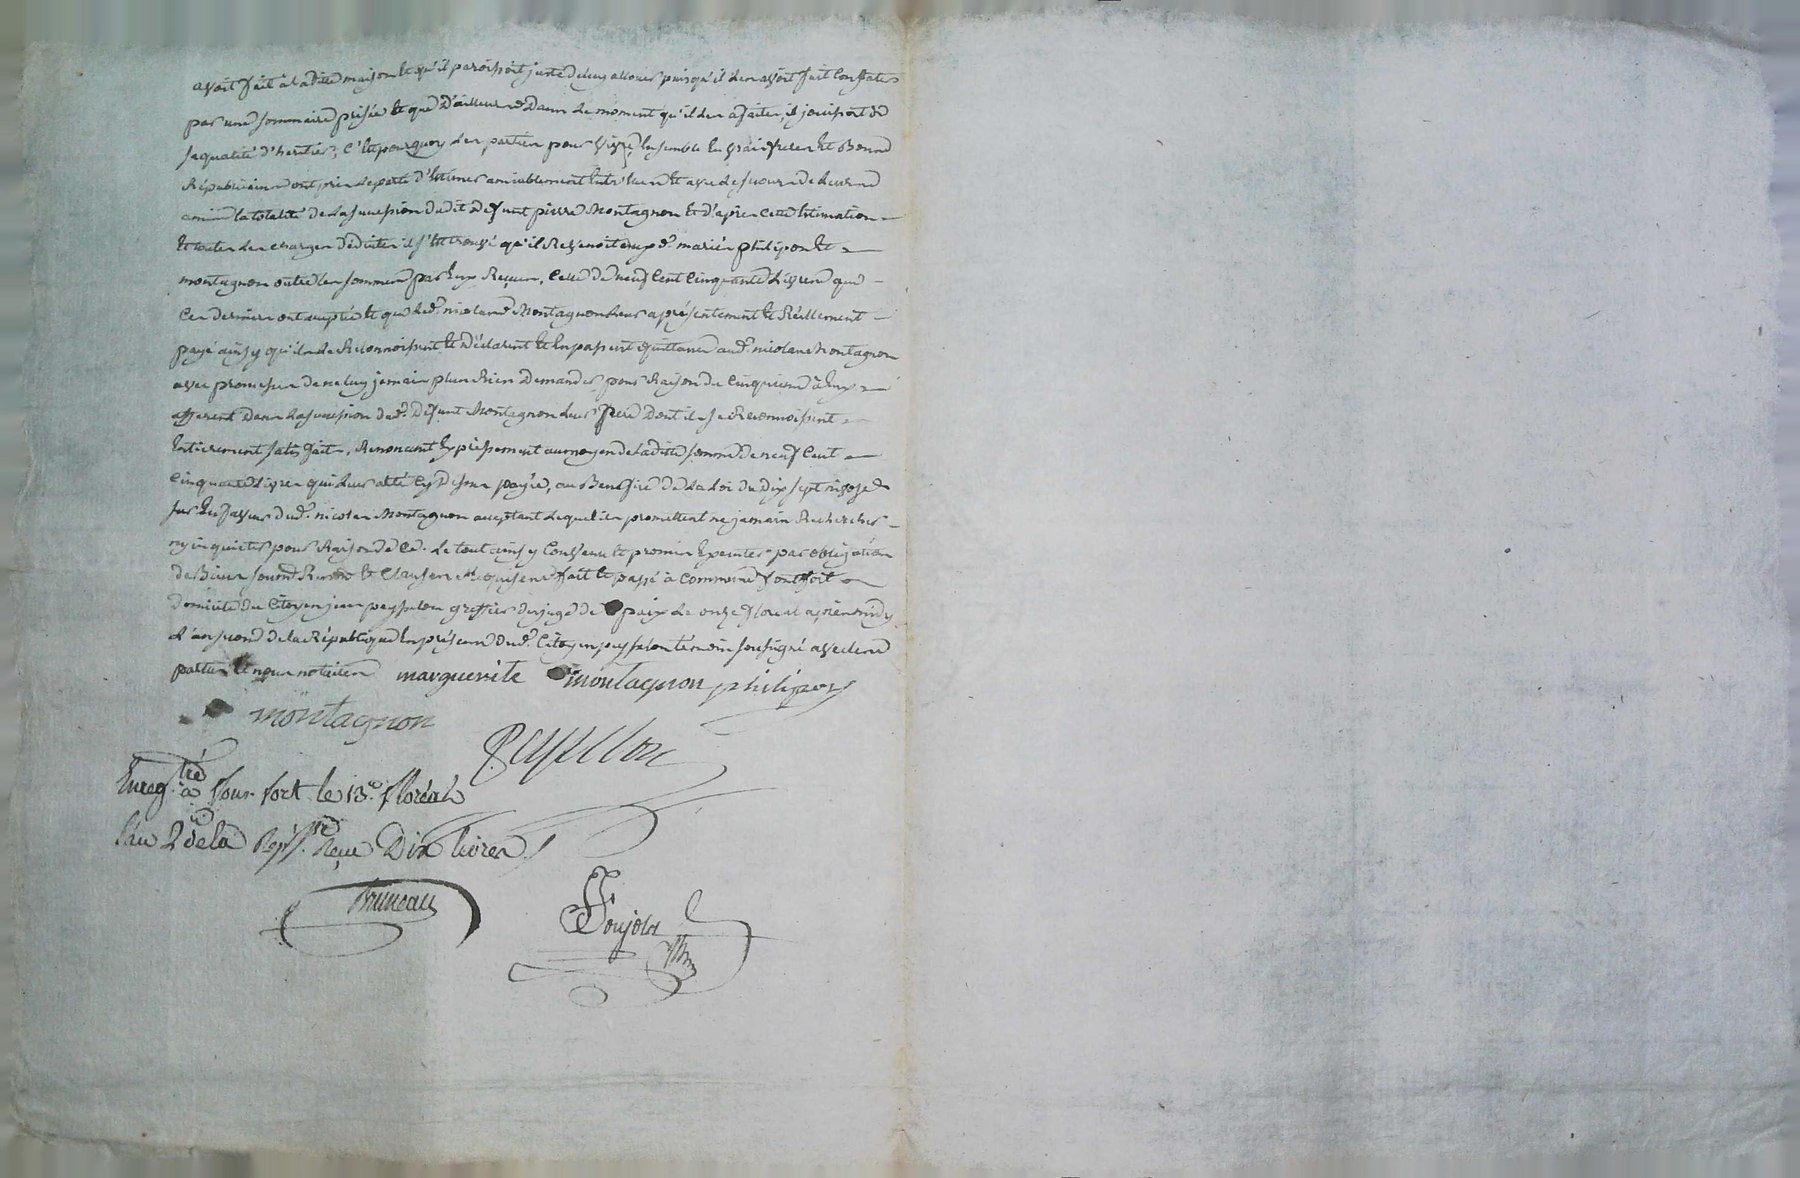 avoit fait à laditte maison et qu'il paroissoit juste deluy allouer puisqu'il les avoit fait Constater
par une sommaire prisée et que d'ailleurs dans le moment qu'il les a faites, il jouissoit de
sa qualité d'heritier, C'est pourquoy les parties pour vivre Ensemble En vrais freres et Bons
Républicains ont pris le parti d'Estimer amiablement Entr'eux et avec le secours de leurs
amis la totalité de la succession dudit deffunt pierre Montagnon et d'après cette Estimation
Et toutes les charges déduites il s'Est trouvé qu'il Revenoit auxd. mariés philipon Et
montagnon outre les sommes par Eux Reçues, Celle de neuf Cent Cinquante Livres que
Ces derniers ont acceptée et que led. nicolas Montagnon leurs a présentement et Réellement
payé ainsy qu'ils le Reconnoissent et déclarent Et En passent quittance aud. nicolas Montagnon
avec promesse de ne luy jamais plus Rien demander pour Raison du Cinquieme à Eux
afferent dans la succession dud. deffunt Montagnon leur Pere dont ils se Reconnoissent
Entierement satisfaits, Renoncant Expressement au moyen de laditte somme de neuf Cent
Cinquante Livres qui leurs a été Cy dessus payée, au Benefice de La Loi du dix sept nivose
sur En faveur dud. nicolas Montagnon acceptant lequel ils promettent ne jamais Rechercher
ny inquieter pour Raison de Ce. Le tout ainsy Convenu et promis Executer par obligation
de Biens soumis Renon. et Clauses Requises fait et passé à Commune fontfort
domicile du Citoyen jean peysselon greffier du juge de paix le onze floreal après midy
L'an second de la République En présence dud. Citoyen peysselon temoin soussigné avec les
parties et nous notaires marguerite montagnon philipon
montagnon
Peysselon
Enreg.tré à four fort le 13.e floréal
L'an 2 de la Rep. Reçu Dix livres
Bruneau
Poujola